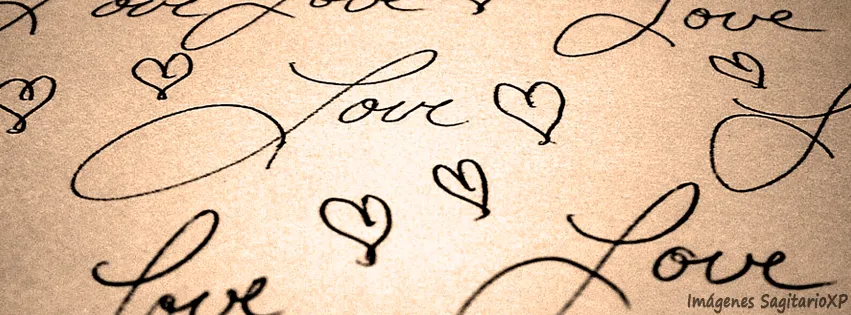 ove
Love
Love
Love
Love
Love
Imágenes SagitarioXP